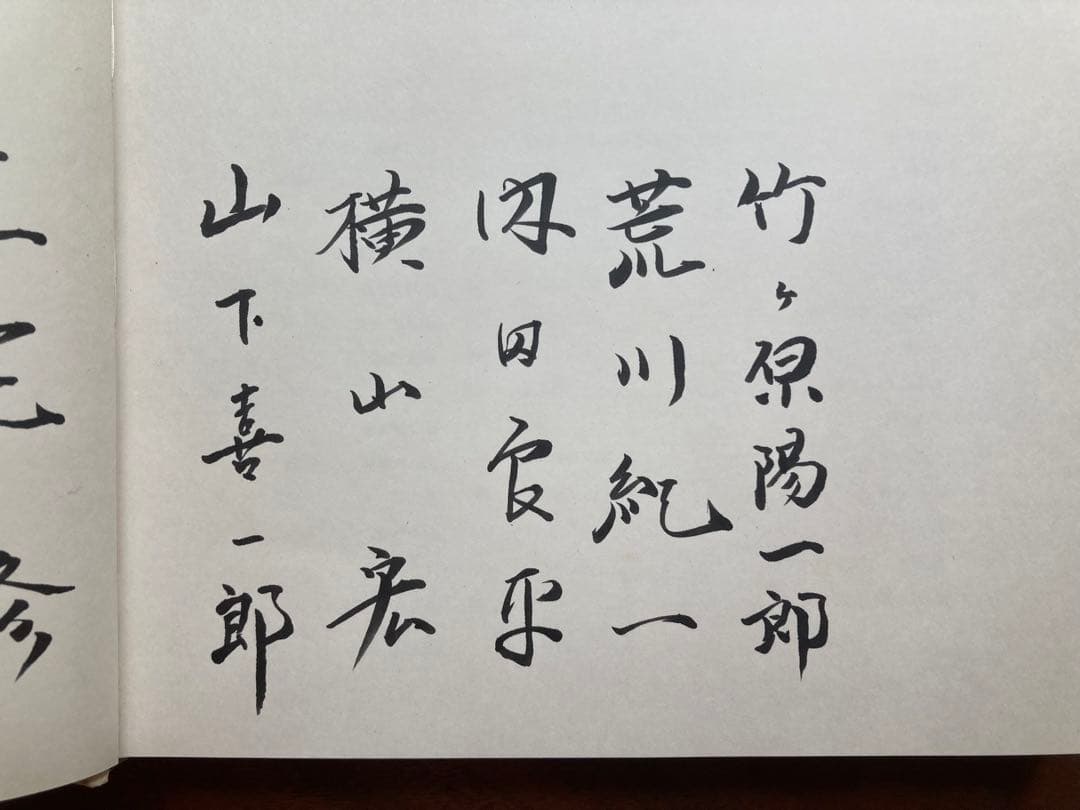 竹ヶ原陽一郎
荒川紀一
内田良平
横山宏
山下喜一郎